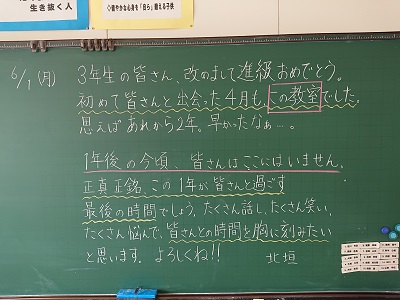 生き抜く人
◇健やかな心身を「自ら」鍛える子供
6/1(月)
3年生の皆さん、改めまして進級おめでとう。
初めて皆さんと出会った4月も、この教室でした。
思えばあれから2年。早かったなぁ…。
1年後の今頃、皆さんはここにはいません。
正真正銘、この1年が皆さんと過ごす
最後の時間でしょう。たくさん話し、たくさん笑い、
たくさん悩んで、皆さんとの時間を胸に刻みたい
と思います。よろしくね!!
北垣